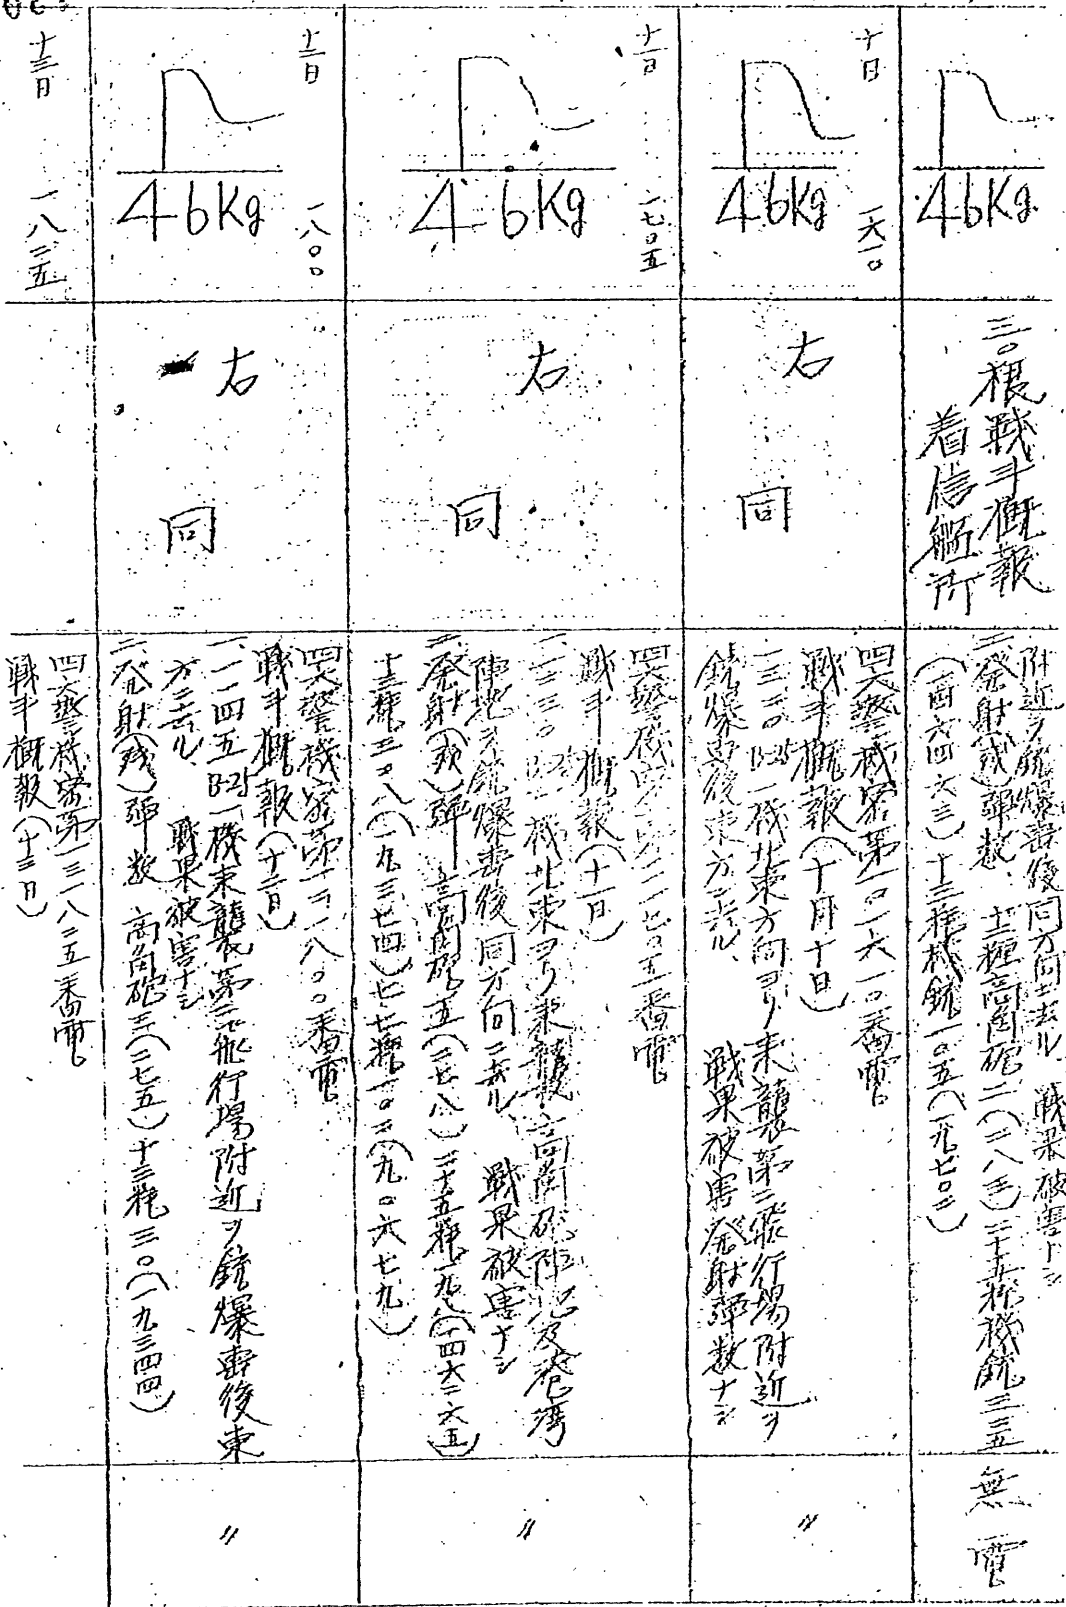 46Kg
三〇根戦斗概報
着信艦所
附近ヲ銃爆撃後同方向ニ去ル 戦果被害ナシ
二、発射(残)弾数 十二糎高角砲二(二八三)二十五粍機銃三三五
(一四六四六三)十三粍機銃一〇五(一九七〇二)
無電
十日 一六一〇
46Kg
右 同
四六警機密第一〇一六一〇番電
戦斗概報(十月十日)
一三三〇B-25一機北東方向ヨリ来襲第二飛行場附近ヲ
銃爆撃後東方ニ去ル、 戦果被害発射弾数ナシ
〃
十一日 一七〇五
46Kg
右 同
四六警機密第一一一七〇五番電
戦斗概報(十一日)
一、一三三〇B-25一機北東ヨリ来襲高角砲陣地及港湾
陣地ヲ銃爆撃後同方向ニ去ル 戦果被害ナシ
二、発射(残)弾 高角砲五(二七八)二十五粍一九八(一四六二六五)
十三粍三二八(一九三七四)七.七粍一〇二(九〇六七九)
〃
十二日 一八〇〇
46Kg
右 同
四六警機密第一二一八〇〇番電
戦斗概報(十二日)
一、一一四五B-25一機来襲第二飛行場附近ヲ銃爆撃後東
方ニ去ル 戦果被害ナシ
二、発射(残)弾数 高角砲三(二七五)十三粍三〇(一九三四四)
〃
十三日 一八二五
四六警機密第一三一八二五番電
戦斗概報(十三日)